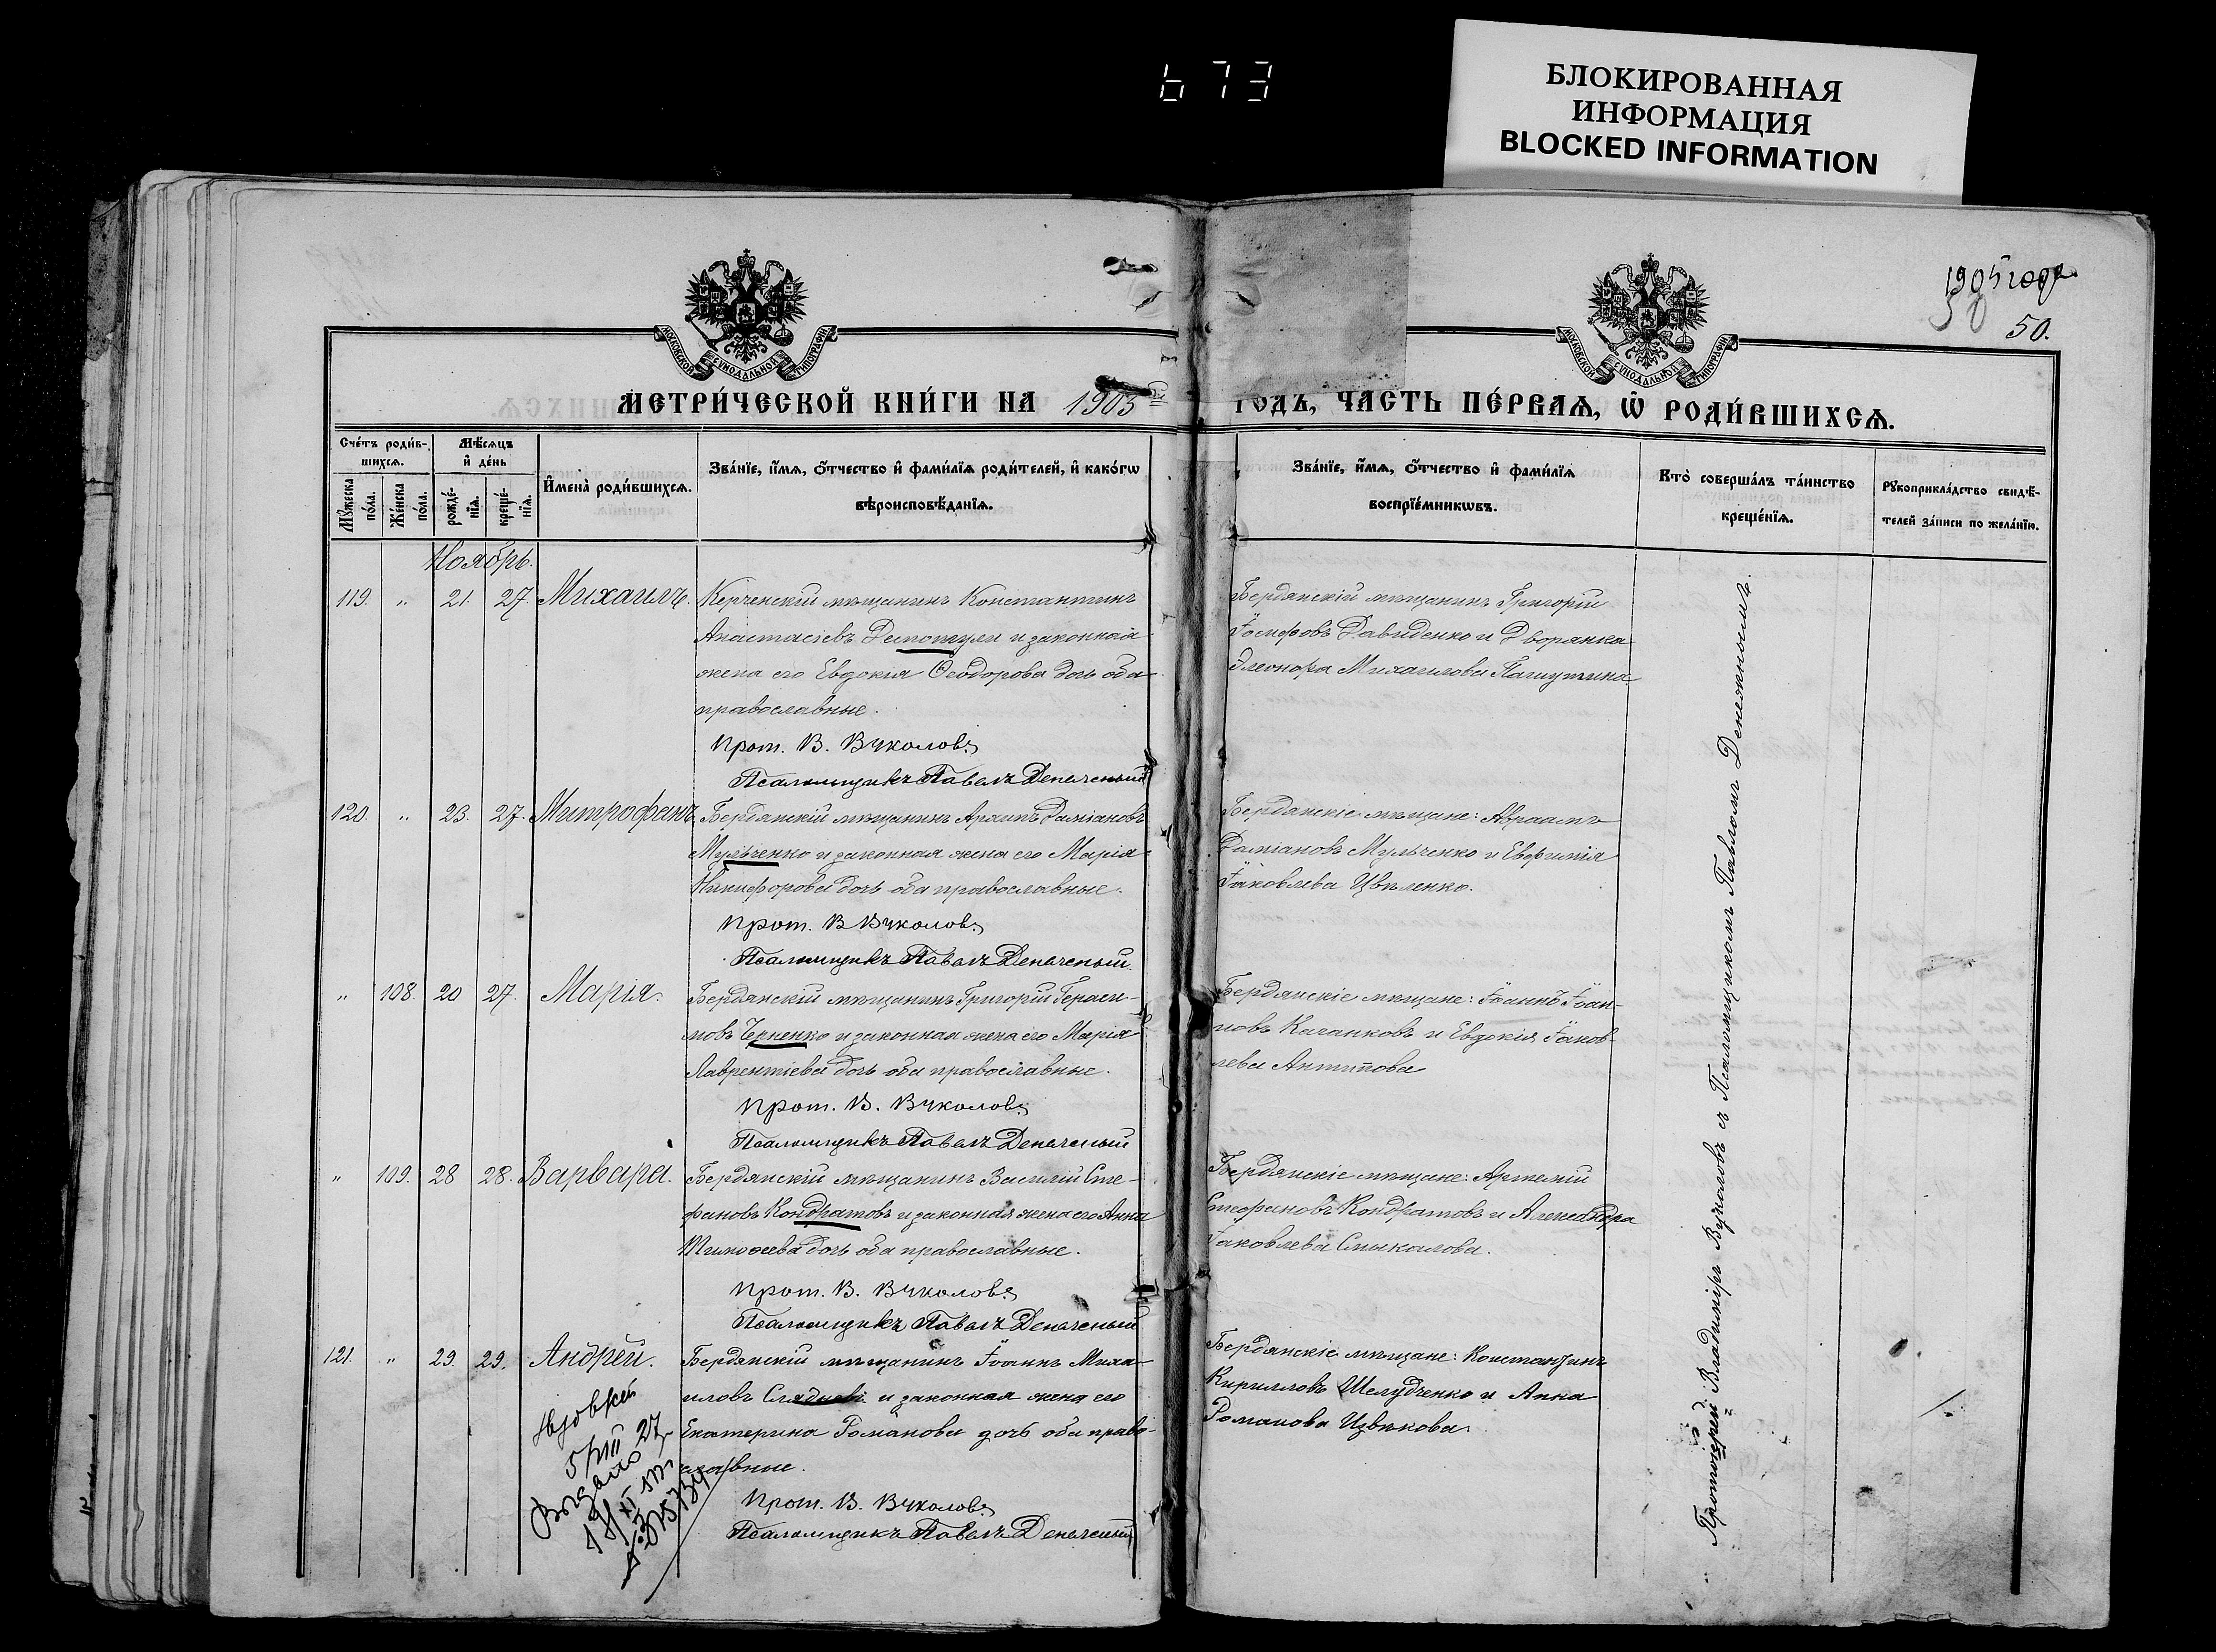 673
БЛОКИРОВАННАЯ
ИНФОРМАЦИЯ
BLOCKED INFORMATION
1905 года
50
50.
МОСКОВСКОЙ СѴНОДАЛЬНОЙ ТИПОГРАФІИ
МОСКОВСКОЙ СѴНОДАЛЬНОЙ ТИПОГРАФІИ
МЕТРИ́ЧЕСКОЙ КНИ́ГИ НА 1905 ГОДЪ, ЧАСТЬ ПЕ́РВАЯ, Ѡ РОДИ́ВШИХСЯ.
Сче́тъ роди́в-
шихся.
Мѣ́сяцъ
и де́нь
Мꙋ́жеска по́ла.
Же́нска по́ла.
рожде́-
нїя.
креще́-
нїя.
Имена̀ роди́вшихся.
Зва́нїе, и́мя, ѻ́тчество и фами́лїя роди́телей, и како́гѡ
вѣроисповѣ́данїя.
Зва́нїе, и́мя, ѻ́тчество и фами́лїя
воспрїе́мникѡвъ.
Кто̀ соверша́лъ та́инство
креще́нїя.
Рꙋкоприкла́дство свидѣ́-
телей за́писи по жела́нїю.
Ноябрь.
119. „ 21. 27. Михаилъ. Керченскій мѣщанинъ Константинъ
Анастасіевъ Деспотули и законная
жена его Евдокія Ѳеодорова дочь оба
православные.
Прот. В. Вуколовъ
Псаломщикъ Павелъ Денежный
Бердянскій мѣщанинъ Григорій
Іосифовъ Давиденко и Дворянка
Элеонора Михаилова Пашутина
120. „ 23. 27. Митрофанъ. Бердянскій мѣщанинъ Архипъ Даміановъ
Мульченко и законная жена его Марія
Никифорова дочь оба православные.
Прот. В Вуколовъ
Псаломщикъ Павелъ Денежный.
Бердянскіе мѣщане: Авраамъ
Даміановъ Мульченко и Евфимія
Іаковлева Цвѣленко.
„ 108. 20 27. Марія. Бердянскій мѣщанинъ Григорій Гераси-
мовъ Черненко и законная жена его Марія
Лаврентіева дочь оба православные.
Прот. В. Вуколовъ
Псаломщикъ Павелъ Денежный
Бердянскіе мѣщане: Іоаннъ Іоан-
новъ Качанковъ и Евдокія Іаков-
лева Антипова
„ 109. 28 28. Варвара. Бердянскій мѣщанинъ Василій Сте-
фановъ Кондратовъ и законная жена его Анна
Тимоѳеева дочь оба православные.
Прот. В. Вуколовъ
Псаломщикъ Павелъ Денежный
Бердянскіе мѣщане: Артемій
Стефановъ Кондратовъ и Александра
Іаковлева Смыкалова.
121. „ 29. 29. Андрей. Бердянскій мѣщанинъ Іоаннъ Миха-
иловъ и законная жена его
Екатерина Романова дочь оба право-
славные.
Прот. В. Вуколовъ
Псаломщикъ Павелъ Денежный
Бердянскіе мѣщане: Константинъ
Кирилловъ Шелудченко и Анна
Романова Извѣкова.
Выдано
Протоіерей Владиміръ Вуколовъ съ Псаломщикомъ Павломъ Денежнымъ.